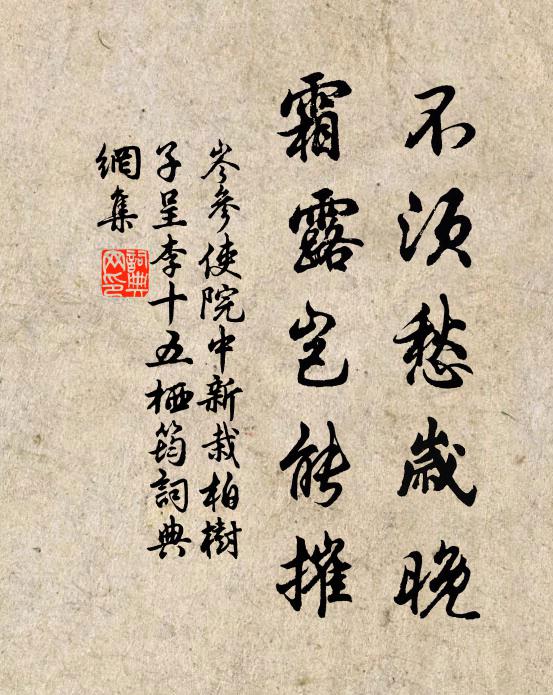 不須愁歲晚
霜露豈能摧
岑參使院中新栽柏樹
子呈李十五栖筠詞典
網集
詞典
网印